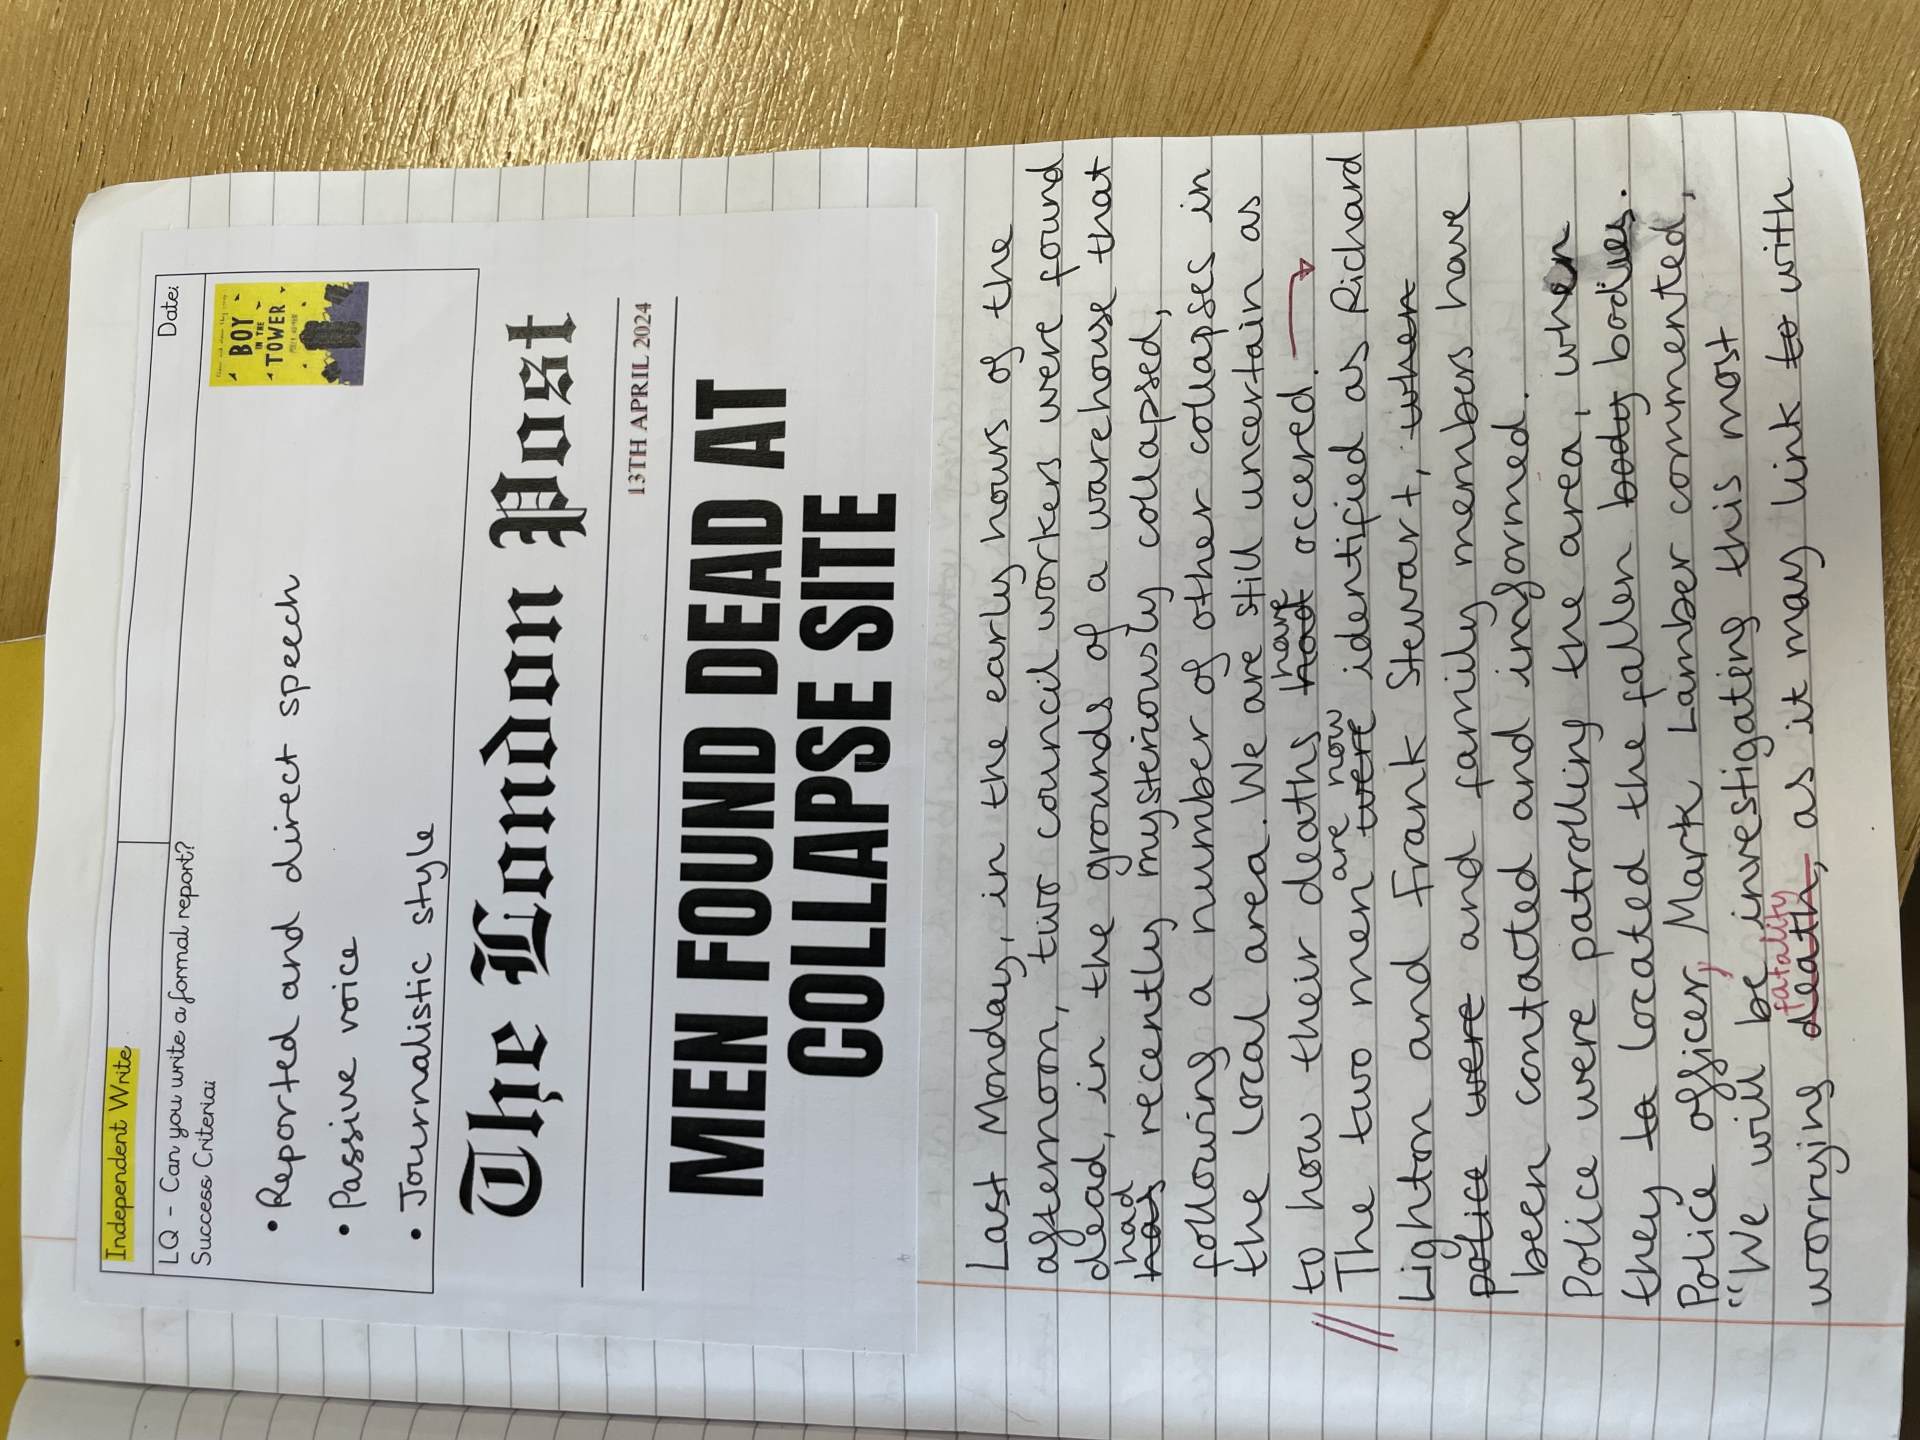 Independent Write
Date:
LQ - Can you write a formal report?
Success Criteria:
BOY
IN THE
TOWER
• Reported and direct speech
• Passive voice
• Journalistic style
The London Post
13TH APRIL 2024
MEN FOUND DEAD AT
COLLAPSE SITE
Last Monday, in the early hours of the
afternoon, two council workers were found
dead, in the grounds of a warehouse that
had
has recently mysteriously collapsed,
following a number of other collapses in
the local area. We are still uncertain as
have
to how their deaths had occered.
are now
The two men were identified as Richard
Lighton and Frank Stewart, when
police were and family members have
been contacted and informed.
Police were patrolling the area, when
they to located the fallen body bodies.
Police officer, Mark Lamber commented,
"We will be investigating this most
fatality
worrying death, as it may link to with